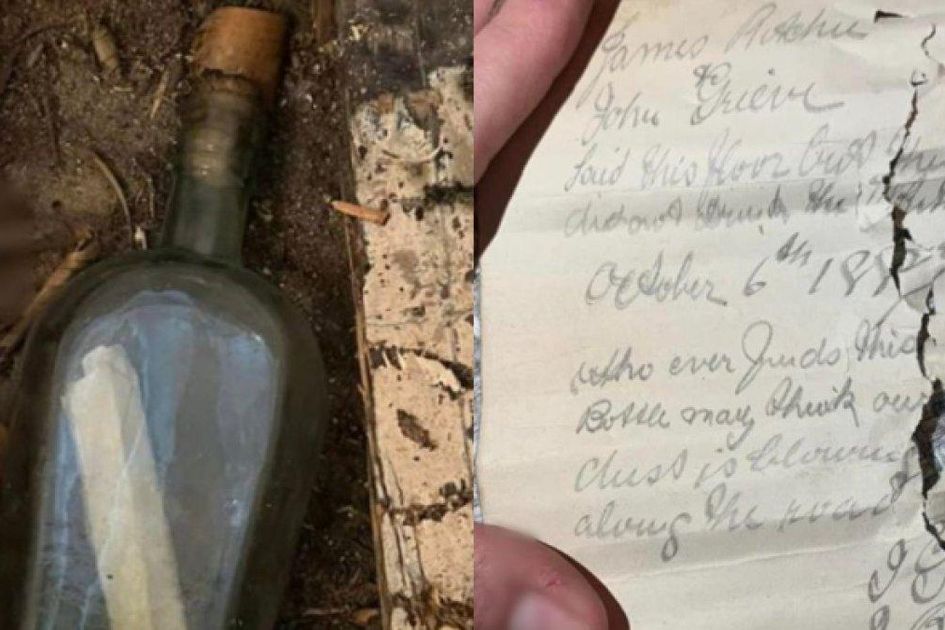 James Ritchie
&
John Grieve
laid this floor but they
did not drink the
October 6th
who ever finds this
Bottle may think our
dust is blowing
along the road